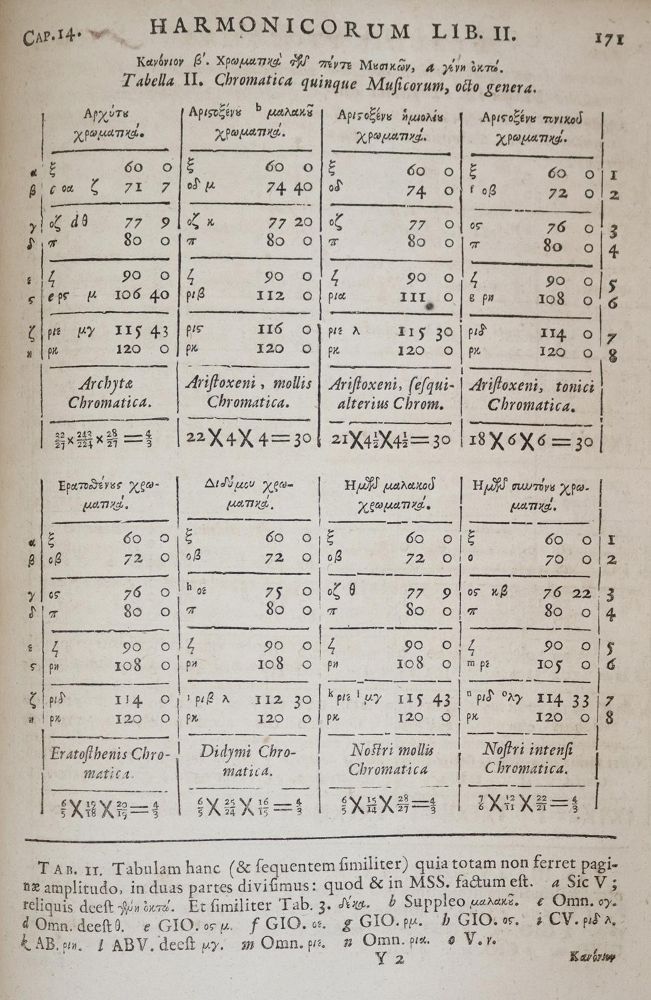 CAP. 14. HARMONICORUM LIB. II. 171
Κανόνιον β΄. Χρωματικὰ τῶν πέντε Μουσικῶν, a γένη ὀκτώ.
Tabella II. Chromatica quinque Musicorum, octo genera.
Ἀρχύτου Ἀριστοξένου b μαλακοῦ Ἀριστοξένου ἡμιολίου Ἀριστοξένου τονικοῦ
χρωματικά. χρωματικά. χρωματικά. χρωματικά.
α ξ 60 0 ξ 60 0 ξ 60 0 ξ 60 0 1
β c οα ζ 71 7 οδ μ 74 40 οδ 74 0 f οβ 72 0 2
γ οζ d θ 77 9 οζ κ 77 20 οζ 77 0 ος 76 0 3
δ π 80 0 π 80 0 π 80 0 π 80 0 4
ε ϟ 90 0 ϟ 90 0 ϟ 90 0 ϟ 90 0 5
ς e ρς μ 106 40 ριβ 112 0 ρια 111 0 g ρη 108 0 6
ζ ριε μγ 115 43 ρις 116 0 ριε λ 115 30 ριδ 114 0 7
η ρκ 120 0 ρκ 120 0 ρκ 120 0 ρκ 120 0 8
Archytæ Aristoxeni, mollis Aristoxeni, sesqui- Aristoxeni, tonici
Chromatica. Chromatica. alterius Chrom. Chromatica.
22/27 × 243/224 × 28/27 = 4/3 22 X 4 X 4 = 30 21 X 4½ X 4½ = 30 18 X 6 X 6 = 30
Ἐρατοσθένους χρω- Διδύμου χρω- Ἡμῶν μαλακοῦ Ἡμῶν συντόνου χρω-
ματικά. ματικά. χρωματικά. ματικά.
α ξ 60 0 ξ 60 0 ξ 60 0 ξ 60 0 1
β οβ 72 0 οβ 72 0 οβ 72 0 ο 70 0 2
γ ος 76 0 h οε 75 0 οζ θ 77 9 ος κβ 76 22 3
δ π 80 0 π 80 0 π 80 0 π 80 0 4
ε ϟ 90 0 ϟ 90 0 ϟ 90 0 ϟ 90 0 5
ς ρη 108 0 ρη 108 0 ρη 108 0 m ρε 105 0 6
ζ ριδ 114 0 i ριβ λ 112 30 k ριε l μγ 115 43 n ριδ o λγ 114 33 7
η ρκ 120 0 ρκ 120 0 ρκ 120 0 ρκ 120 0 8
Eratosthenis Chro- Didymi Chro- Nostri mollis Nostri intensi
matica. matica. Chromatica Chromatica
6/5 X 19/18 X 20/19 = 4/3 6/5 X 25/24 X 16/15 = 4/3 6/5 X 15/14 X 28/27 = 4/3 7/6 X 12/11 X 22/21 = 4/3
TAB. II. Tabulam hanc (& sequentem similiter) quia totam non ferret pagi-
næ amplitudo, in duas partes divisimus: quod & in MSS. factum est. a Sic V;
reliquis deest γένη ὀκτώ. Et similiter Tab. 3. δέκα. b Suppleo μαλακοῦ. c Omn. ογ.
d Omn. deest θ. e GIO. ος μ. f GIO. οε. g GIO. ρμ. h GIO. ος. i CV. ριδ λ.
k AB. ριη. l ABV. deest μγ. m Omn. ριε. n Omn. ρια. o V. ν.
Y 2 Κανόνιον